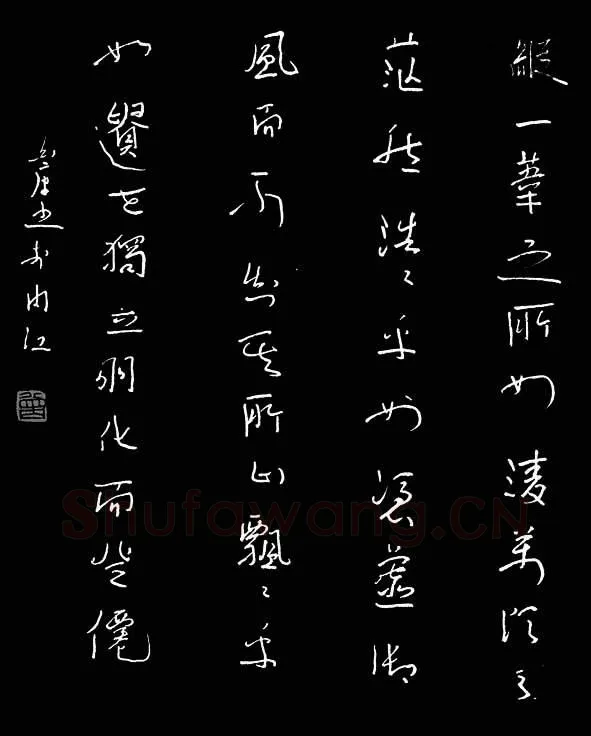 縱一葦之所如淩萬頃之
茫然浩〻乎如憑虛御
風而不知其所止飄〻乎
如遺世獨立羽化而登僊
書於內江
Shufawang.CN